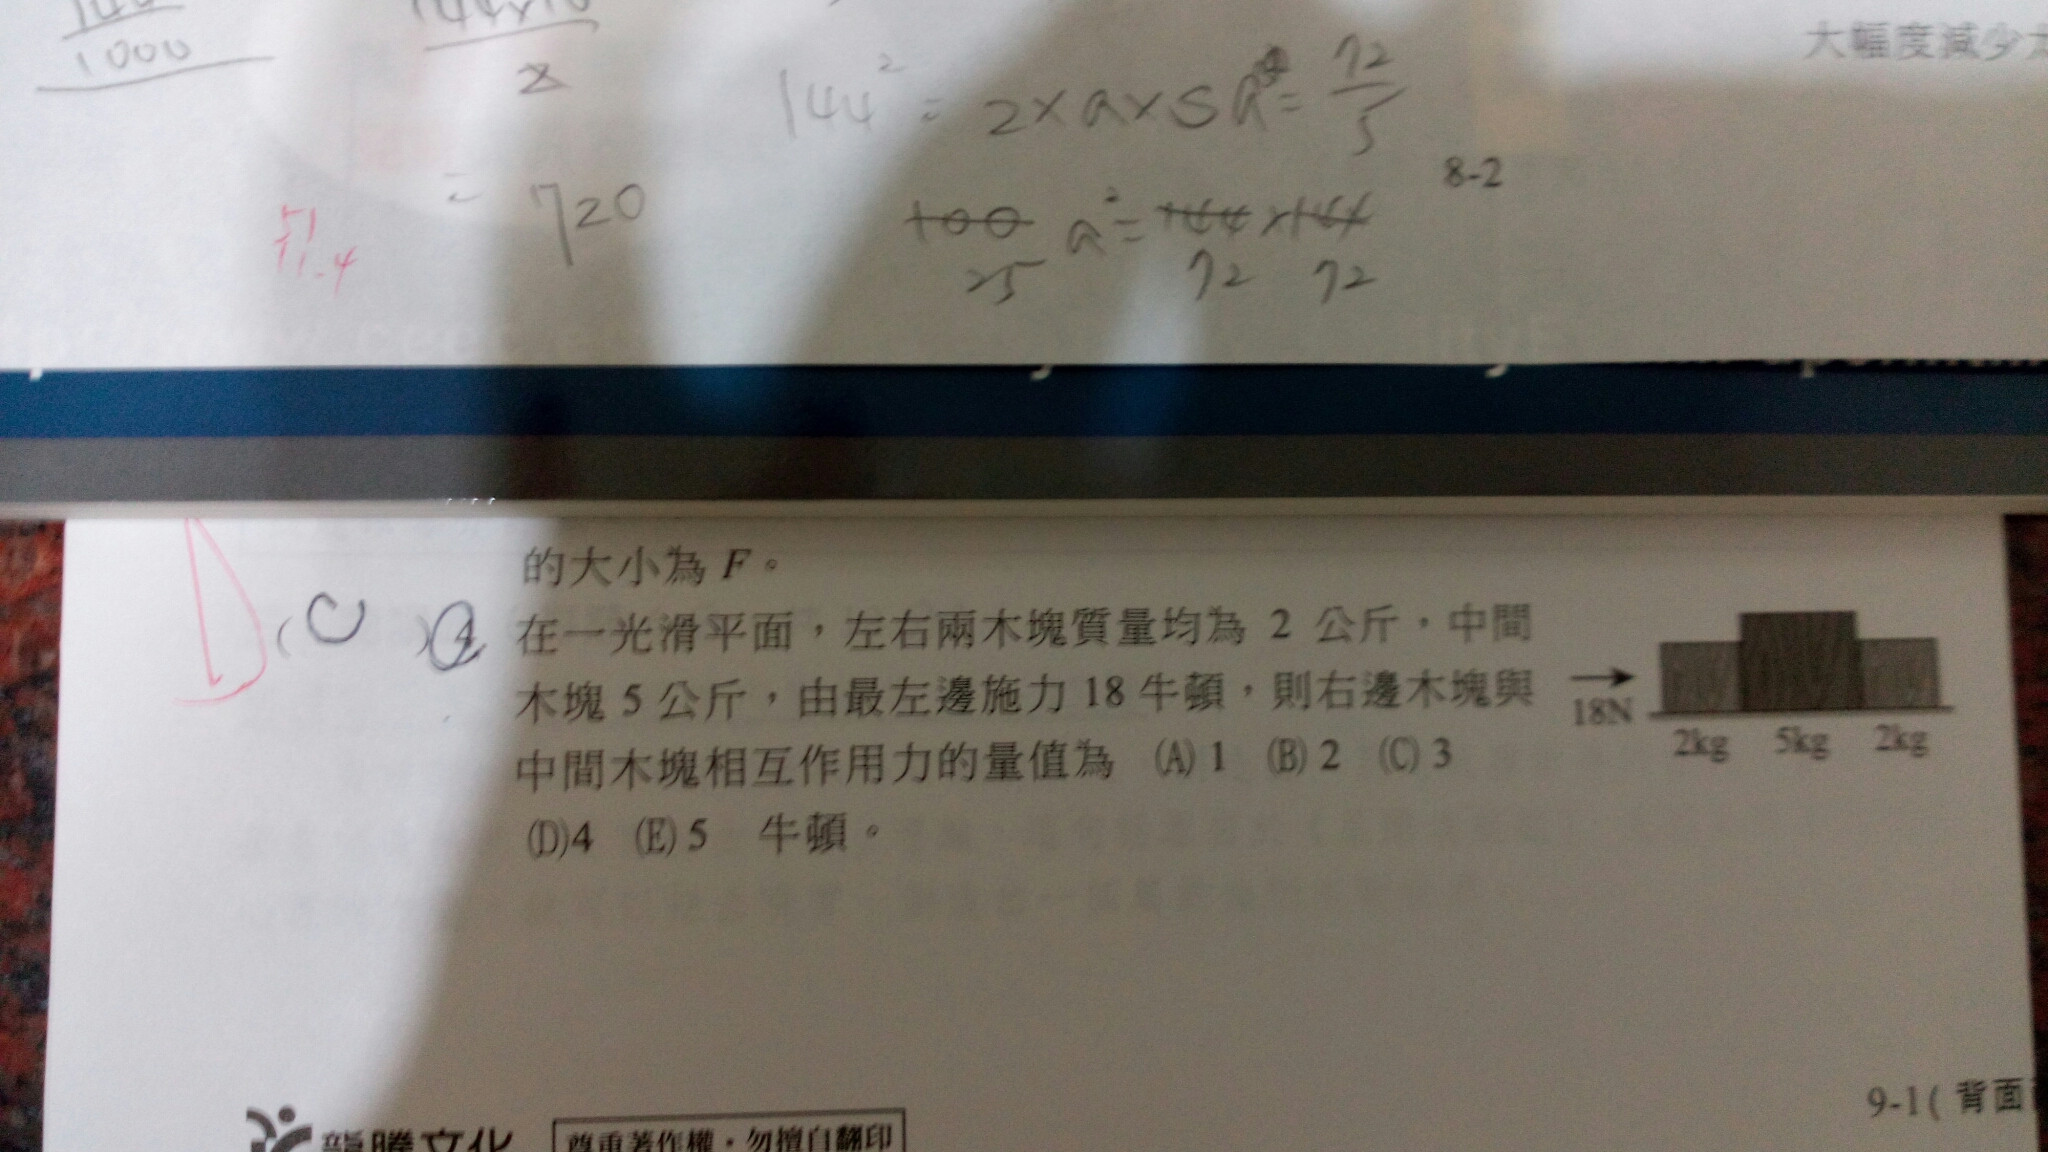 1000
2
144² = 2×a×5
a = 72
5
= 720
8-2
100 a² = 144×144
25 72 72
51
11.4
大幅度減少
的大小為 F。
D ( C ) 4 在一光滑平面，左右兩木塊質量均為 2 公斤，中間
木塊 5 公斤，由最左邊施力 18 牛頓，則右邊木塊與
中間木塊相互作用力的量值為 (A) 1 (B) 2 (C) 3
(D)4 (E) 5 牛頓。
18N
2kg 5kg 2kg
9-1( 背面
龍騰文化
尊重著作權・勿擅自翻印